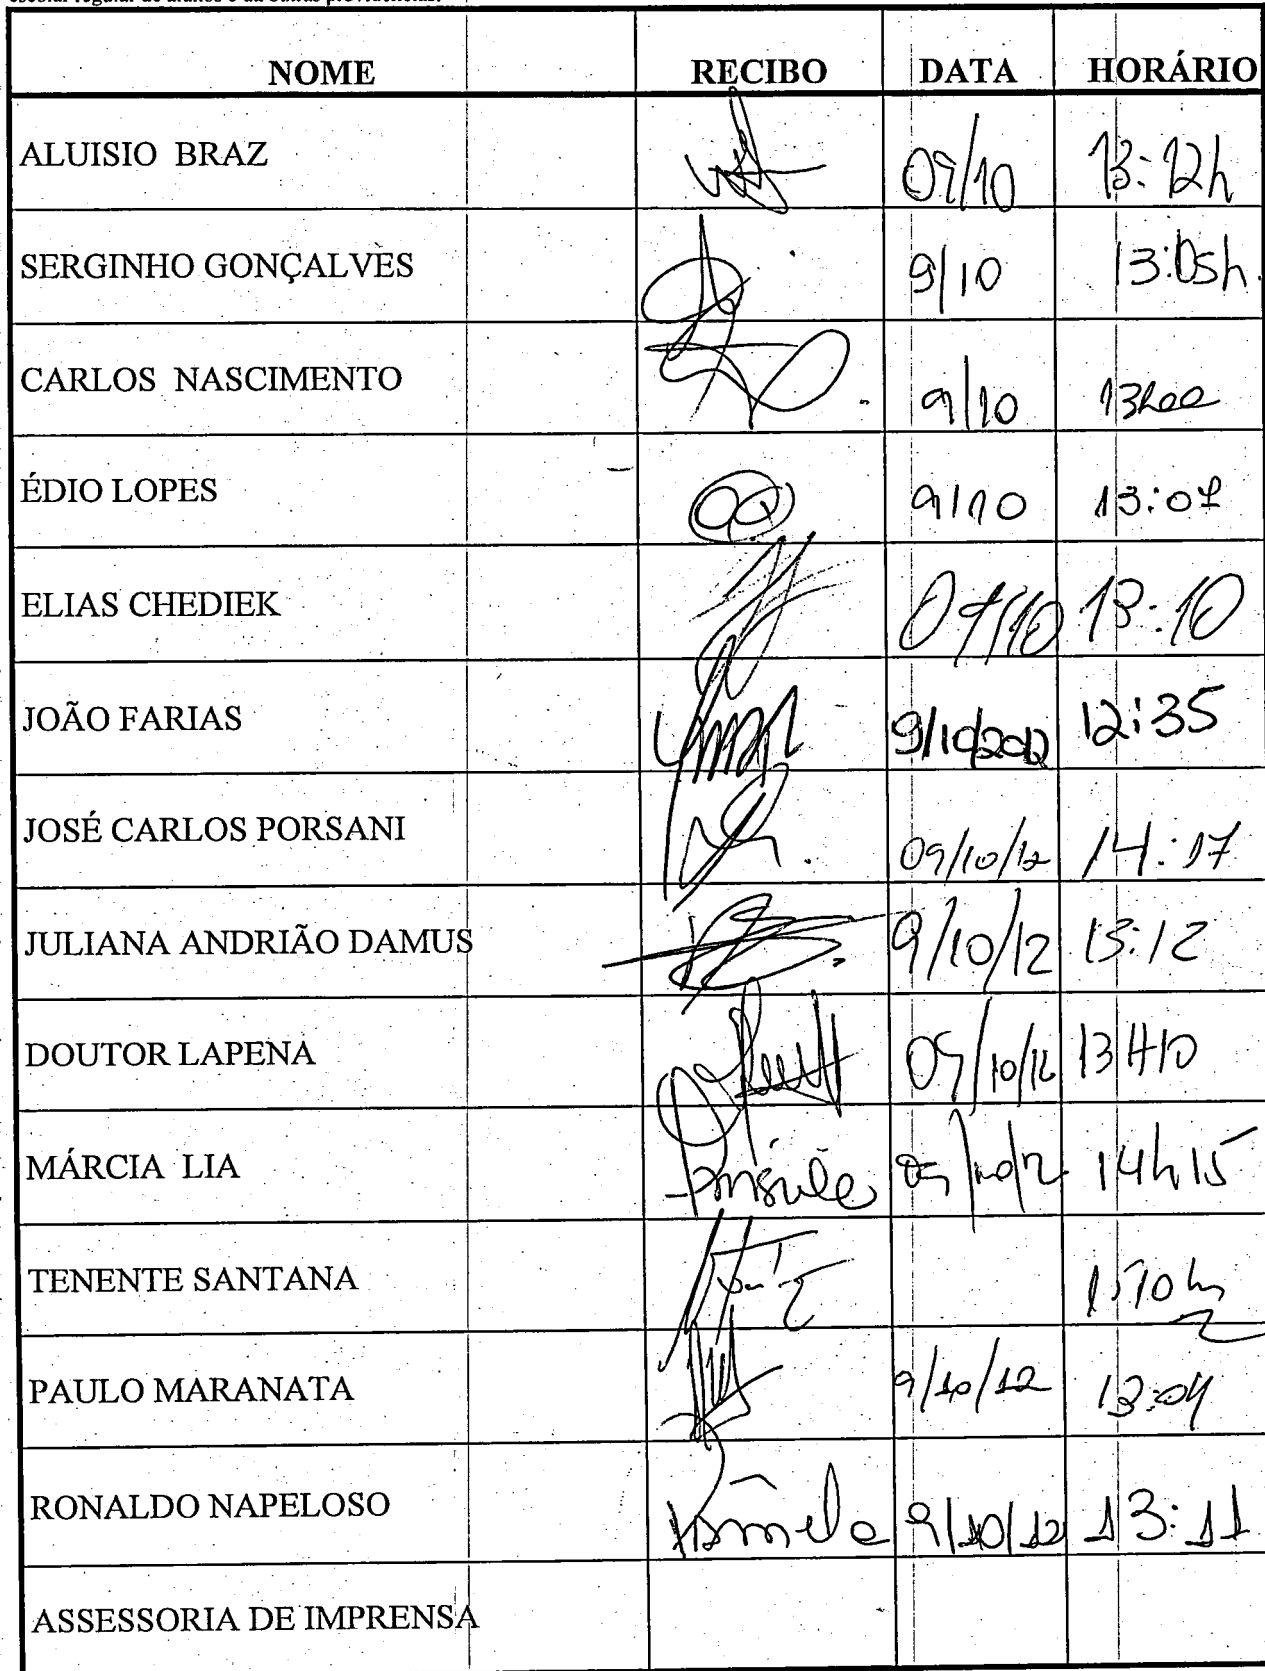 escolar regular de alunos e dá outras providências.
NOME RECIBO DATA HORÁRIO
ALUISIO BRAZ 09/10 13:12h
SERGINHO GONÇALVES 9/10 13:05h.
CARLOS NASCIMENTO 9/10 13h00
ÉDIO LOPES 9/10 13:07
ELIAS CHEDIEK 09/10 13:10
JOÃO FARIAS 9/10/2012 12:35
JOSÉ CARLOS PORSANI 09/10/12 14:17
JULIANA ANDRIÃO DAMUS 9/10/12 13:12
DOUTOR LAPENA 09/10/12 13H10
MÁRCIA LIA 09/10/12 14h15
TENENTE SANTANA
PAULO MARANATA 9/10/12 13:04
RONALDO NAPELOSO 9/10/12 13:11
ASSESSORIA DE IMPRENSA